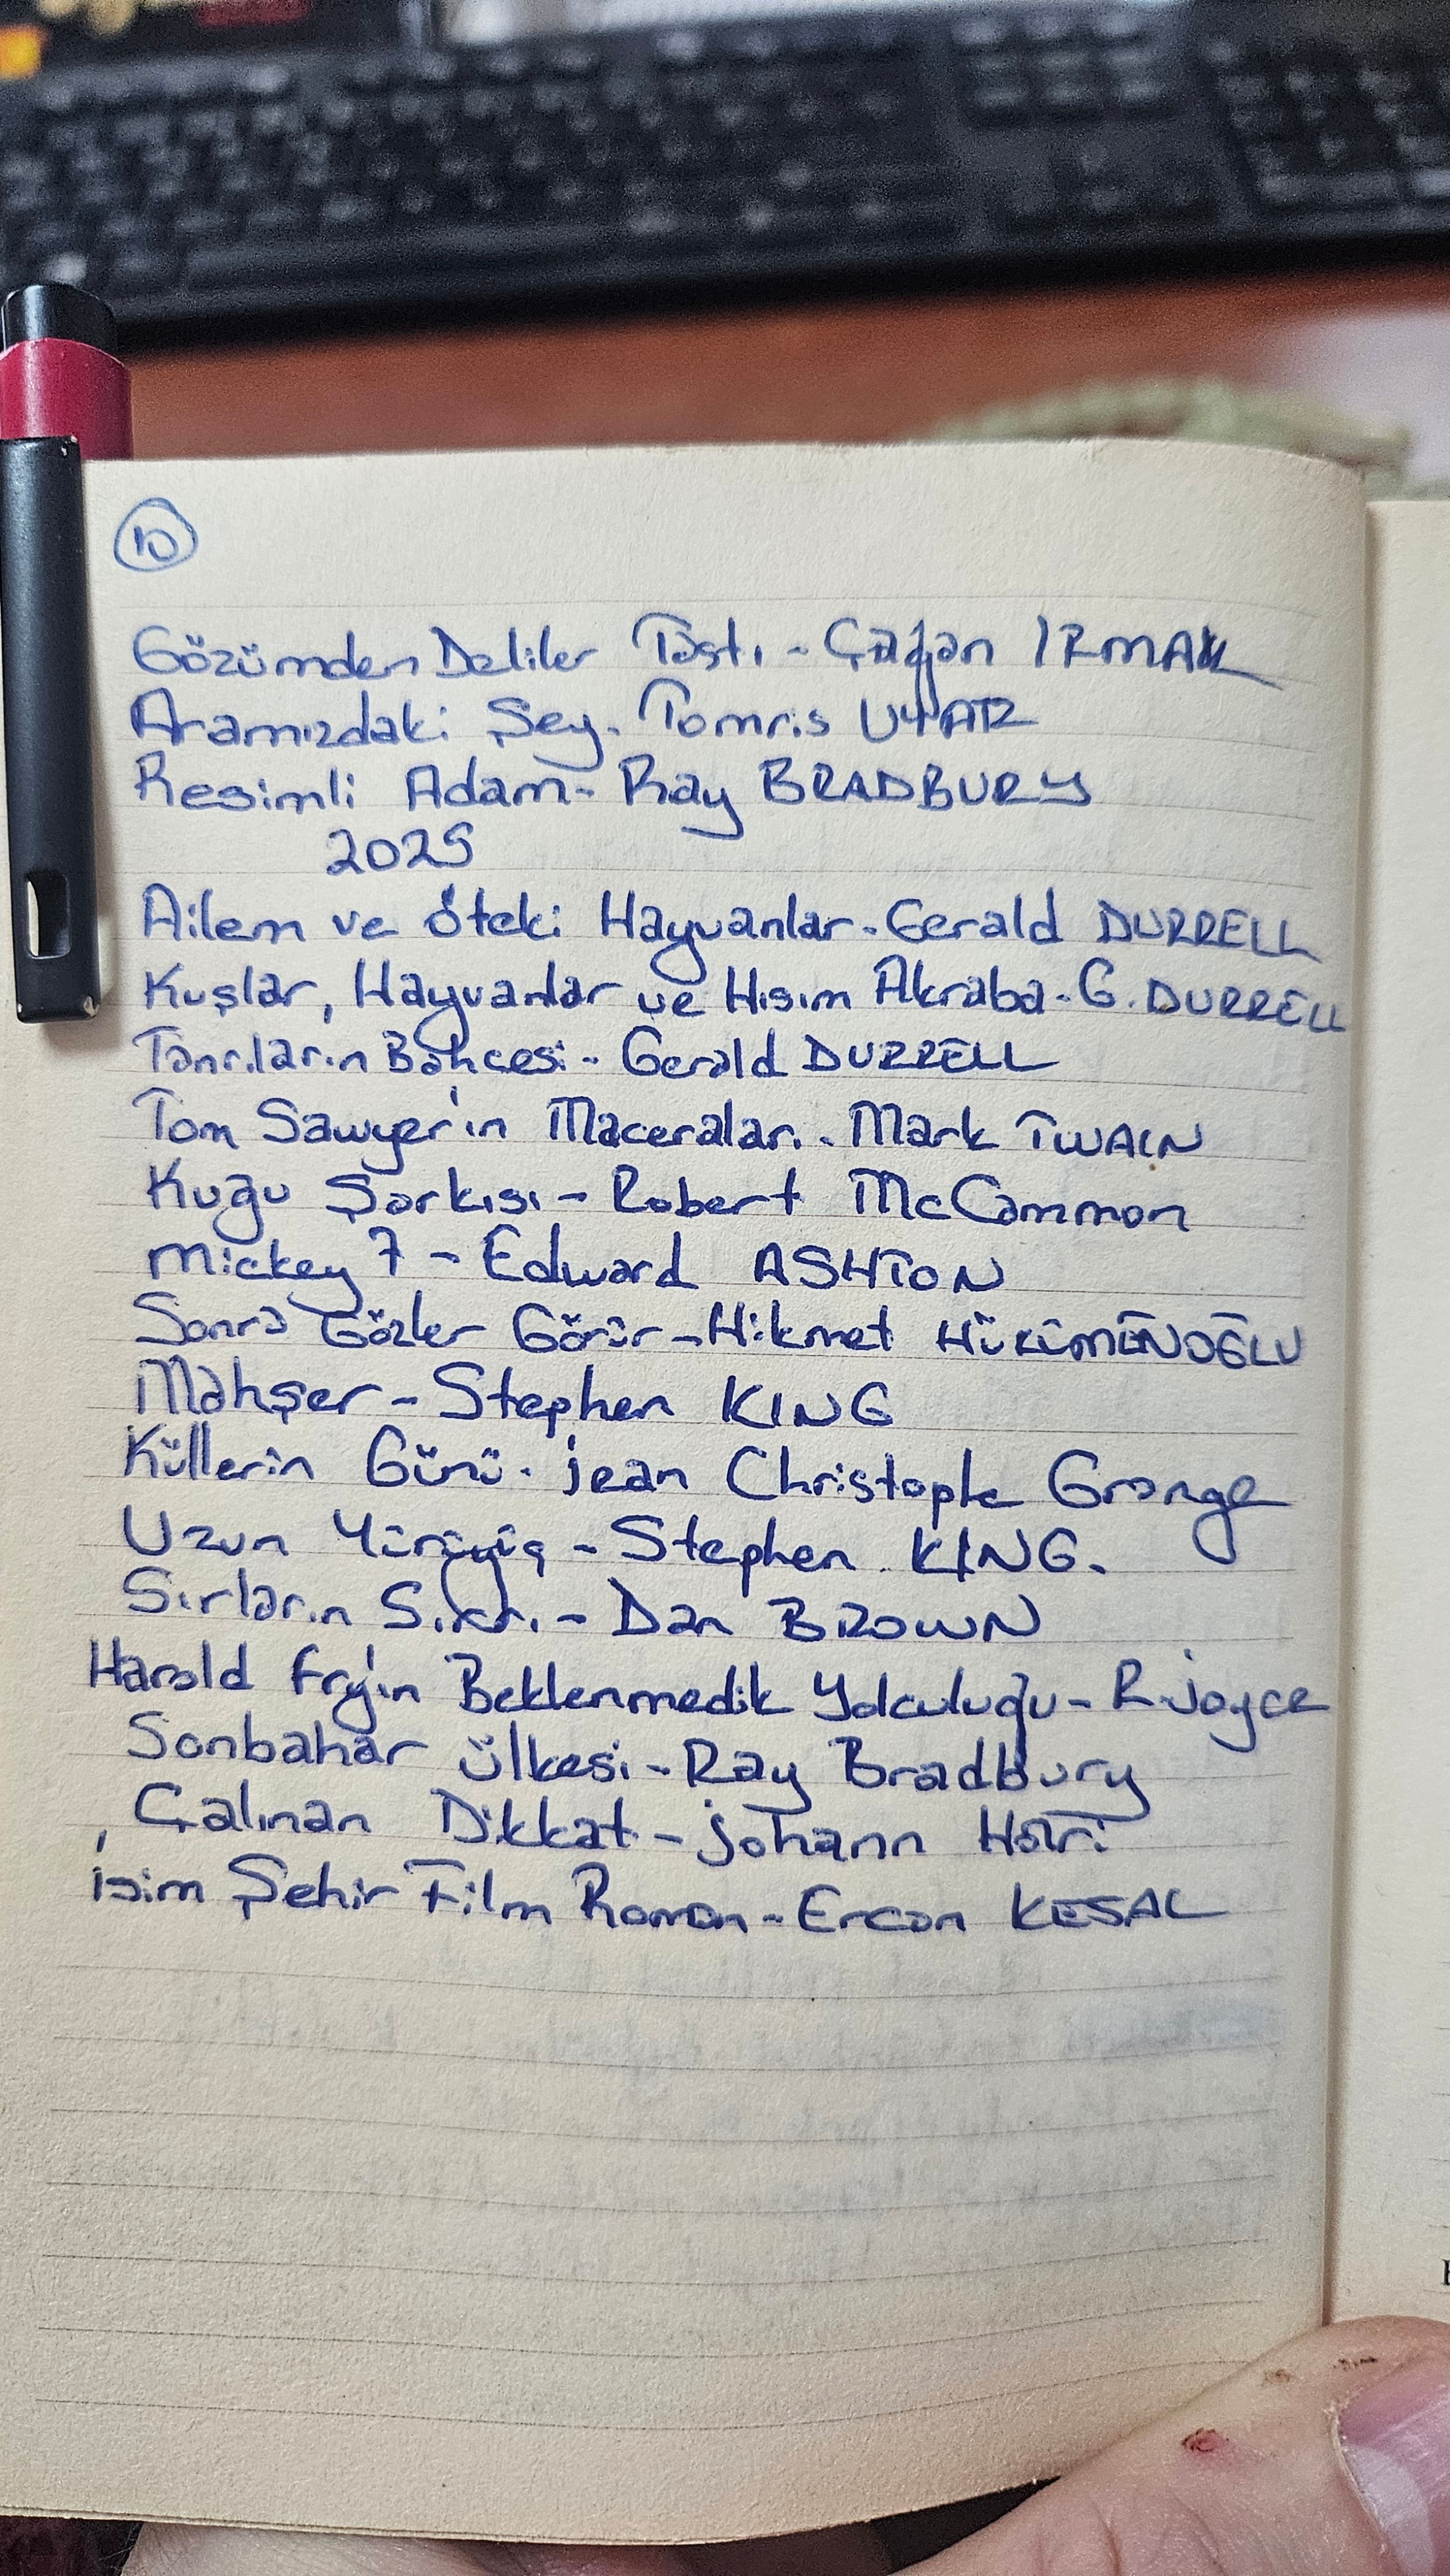 10
Gözümden Deliler Taştı - Çağan IRMAK
Aramızdaki Şey - Tomris UYAR
Resimli Adam - Ray BRADBURY
2025
Ailem ve Öteki Hayvanlar - Gerald DURRELL
Kuşlar, Hayvanlar ve Hısım Akraba - G. DURRELL
Tanrıların Bahçesi - Gerald DURRELL
Tom Sawyer'in Maceraları - Mark TWAIN
Kuğu Şarkısı - Robert McCammon
Mickey 7 - Edward ASHTON
Sonra Gözler Görür - Hikmet HÜKÜMENOĞLU
Mahşer - Stephen KING
Küllerin Günü - Jean Christophe Grange
Uzun Yürüyüş - Stephen KING.
Sırların Sırrı - Dan BROWN
Harold Fry'ın Beklenmedik Yolculuğu - R. Joyce
Sonbahar Ülkesi - Ray Bradbury
Çalınan Dikkat - Johann Hari
İsim Şehir Film Roman - Ercan KESAL